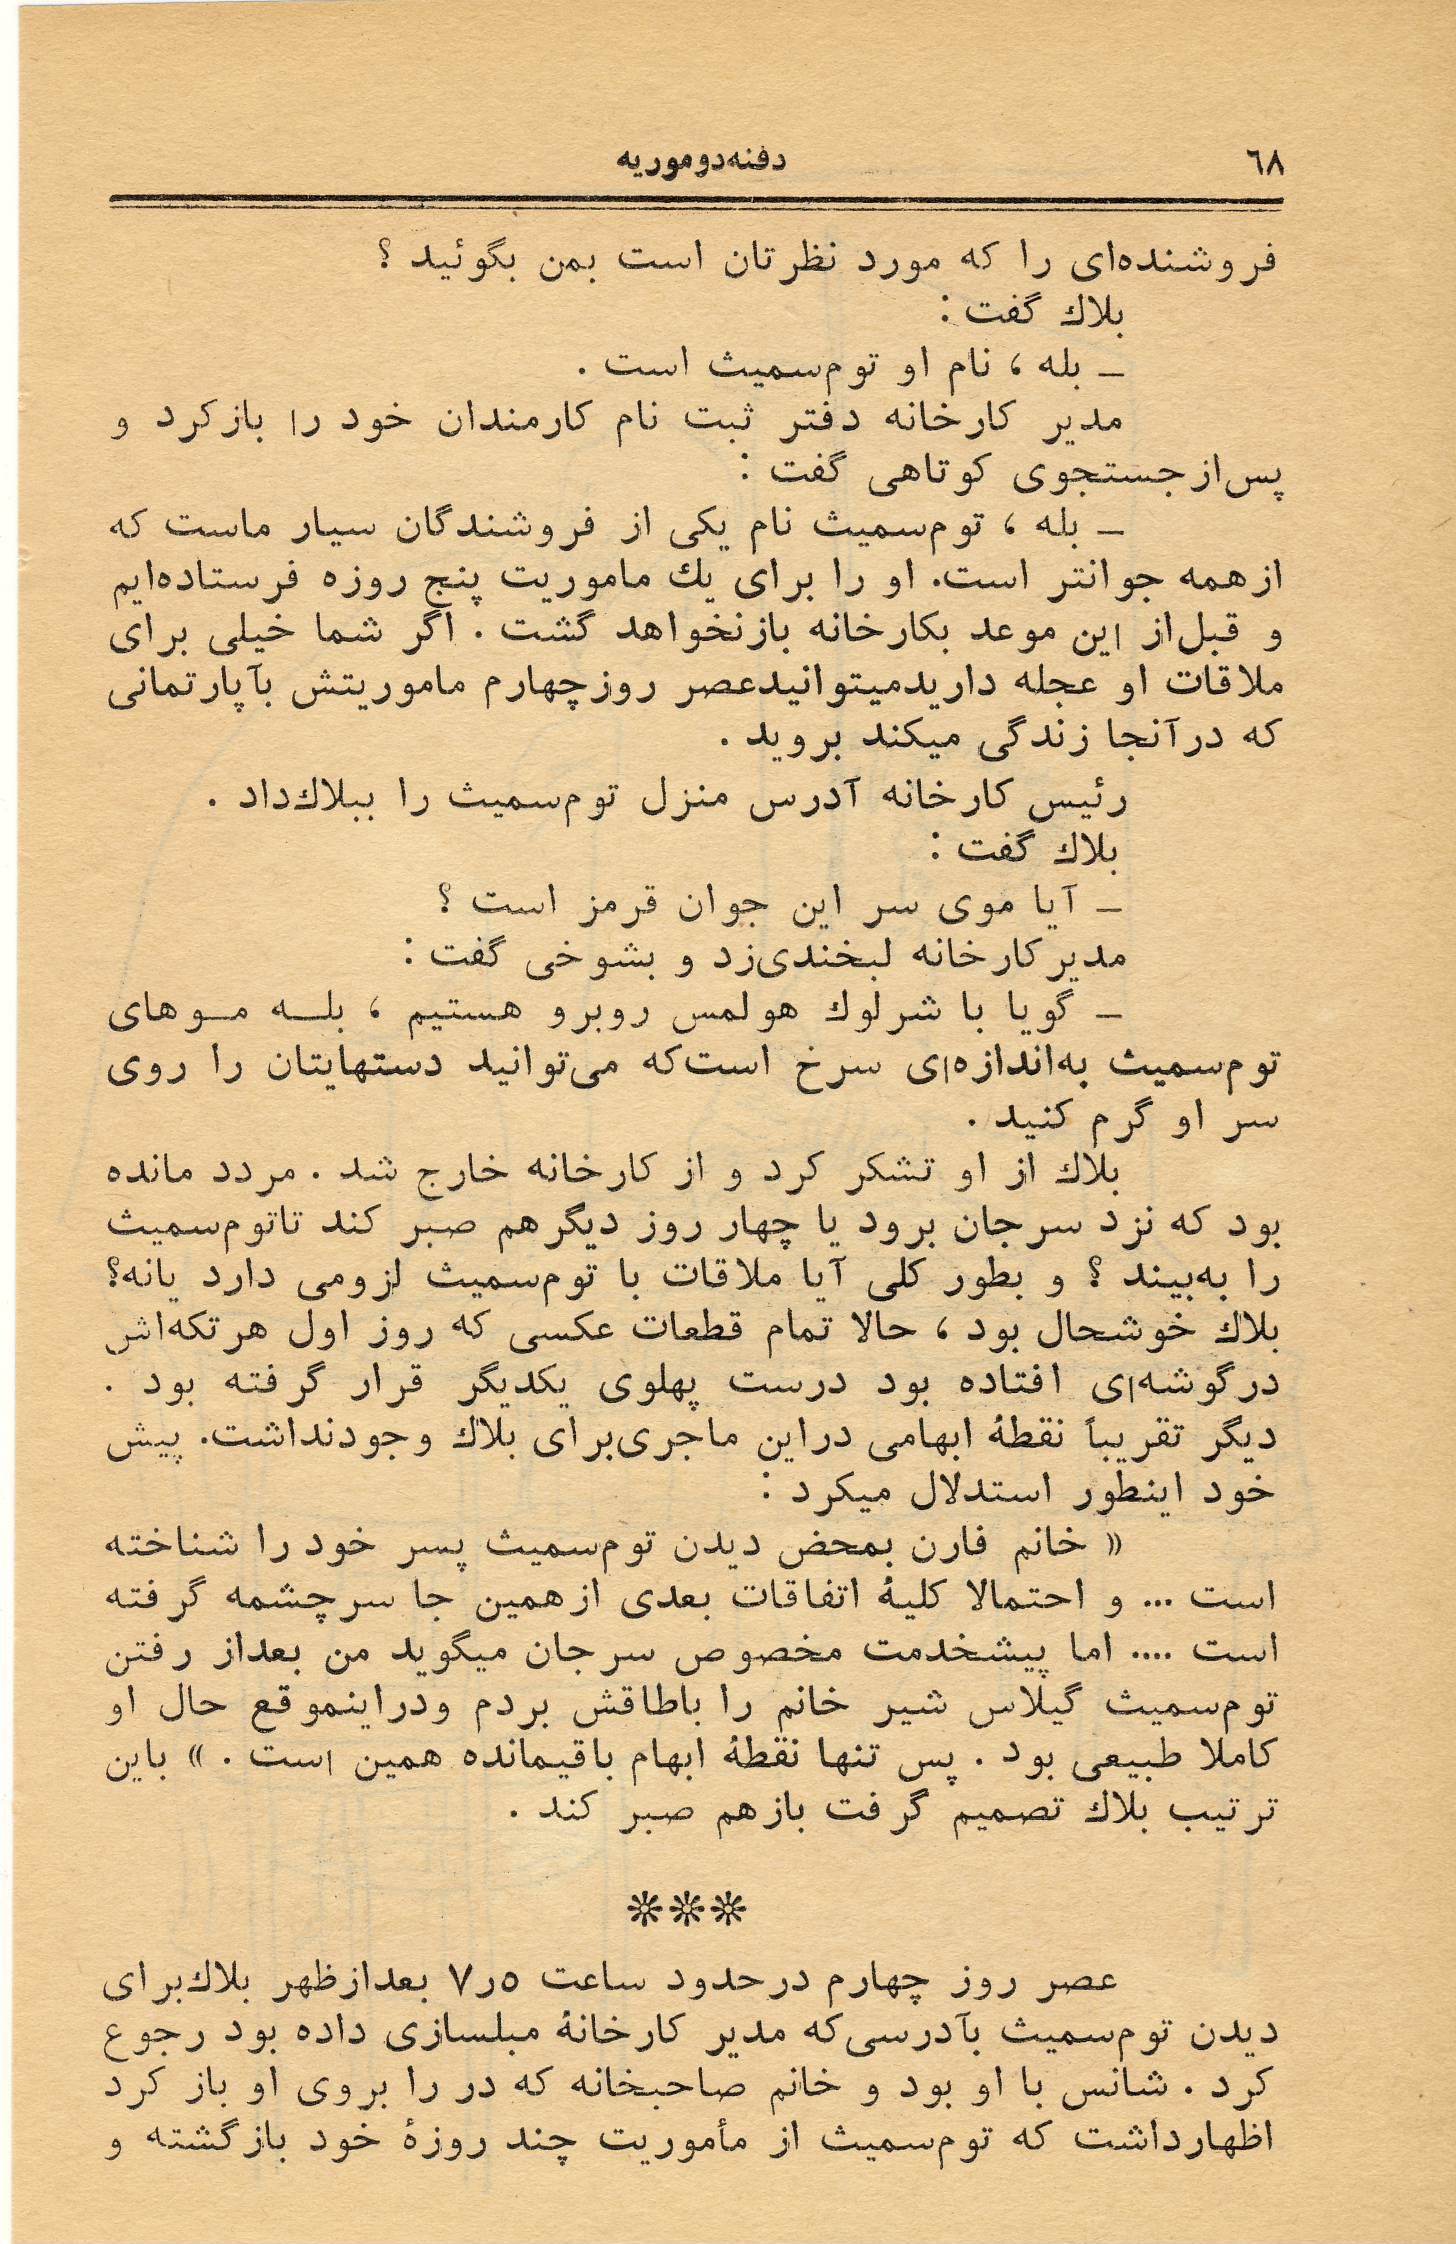 ٦٨
دفنه‌دوموریه
فروشنده‌ای را که مورد نظرتان است بمن بگوئید ؟
بلاك گفت :
ــ بله ، نام او توم‌سمیث است .
مدیر کارخانه دفتر ثبت نام کارمندان خود را بازکرد و
پس‌ازجستجوی کوتاهی گفت :
ــ بله ، توم‌سمیث نام یکی از فروشندگان سیار ماست که
ازهمه جوانتر است. او را برای یك ماموریت پنج روزه فرستاده‌ایم
و قبل‌از این موعد بکارخانه بازنخواهد گشت . اگر شما خیلی برای
ملاقات او عجله داریدمیتوانیدعصر روزچهارم ماموریتش بآپارتمانی
که درآنجا زندگی میکند بروید .
رئیس کارخانه آدرس منزل توم‌سمیث را ببلاك‌داد .
بلاك گفت :
ــ آیا موی سر این جوان قرمز است ؟
مدیرکارخانه لبخندی‌زد و بشوخی گفت :
ــ گویا با شرلوك هولمس روبرو هستیم ، بلــه مــوهای
توم‌سمیث به‌اندازه‌ای سرخ است‌که می‌توانید دستهایتان را روی
سر او گرم کنید .
بلاك از او تشکر کرد و از کارخانه خارج شد . مردد مانده
بود که نزد سرجان برود یا چهار روز دیگرهم صبر کند تاتوم‌سمیث
را به‌بیند ؟ و بطور کلی آیا ملاقات با توم‌سمیث لزومی دارد یانه؟
بلاك خوشحال بود ، حالا تمام قطعات عکسی که روز اول هرتکه‌اش
درگوشه‌ای افتاده بود درست پهلوی یکدیگر قرار گرفته بود .
دیگر تقریباً نقطهٔ ابهامی دراین ماجری‌برای بلاك وجودنداشت. پیش
خود اینطور استدلال میکرد :
« خانم فارن بمحض دیدن توم‌سمیث پسر خود را شناخته
است ... و احتمالا کلیهٔ اتفاقات بعدی ازهمین جا سرچشمه گرفته
است .... اما پیشخدمت مخصوص سرجان میگوید من بعداز رفتن
توم‌سمیث گیلاس شیر خانم را باطاقش بردم ودراینموقع حال او
کاملا طبیعی بود . پس تنها نقطهٔ ابهام باقیمانده همین است . » باین
ترتیب بلاك تصمیم گرفت بازهم صبر کند .
❊❊❊
عصر روز چهارم درحدود ساعت ۷٫۵ بعدازظهر بلاك‌برای
دیدن توم‌سمیث بآدرسی‌که مدیر کارخانهٔ مبلسازی داده بود رجوع
کرد . شانس با او بود و خانم صاحبخانه که در را بروی او باز کرد
اظهارداشت که توم‌سمیث از مأموریت چند روزهٔ خود بازگشته و